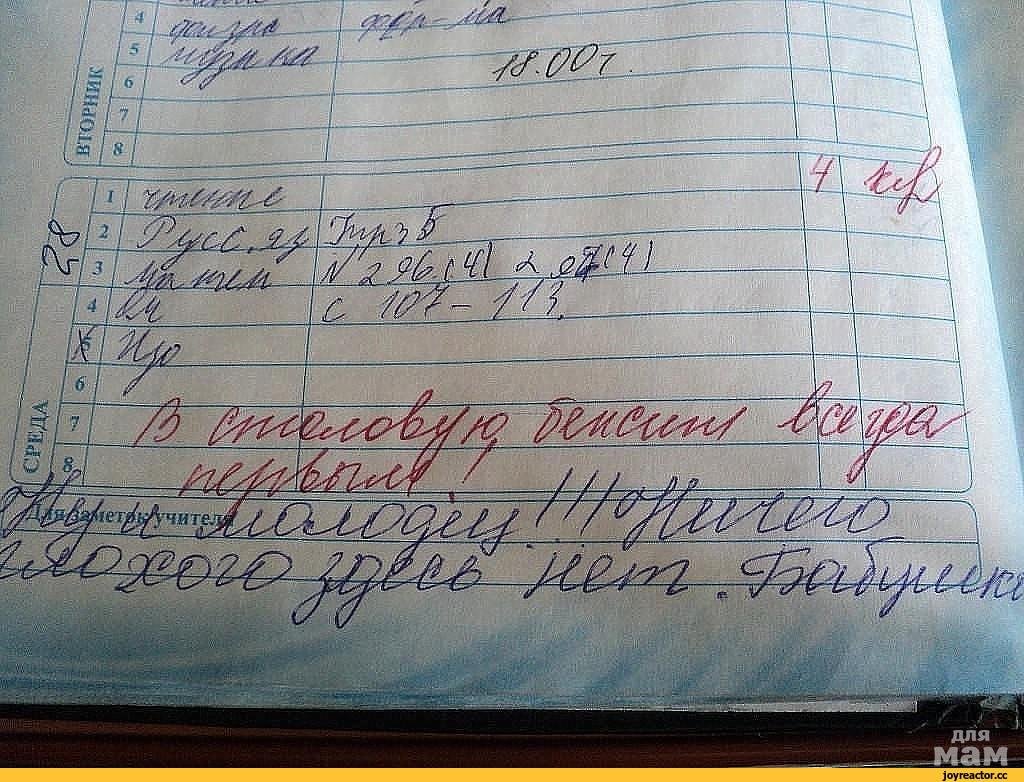 4 физра фор-ма
5 музыка
6 18.00г.
7
8
ВТОРНИК
1 чтение 4
2 Русс.яз Упр 5
3 матем N 296.(4) 297(4)
4 с 107-113.
5 Изо
6
7 В столовую бежит всегда
8 первым!
28
СРЕДА
Для заметок учителя
Ну и молодец!!! Ничего
плохого здесь нет. Бабушка
для
мам
joyreactor.cc